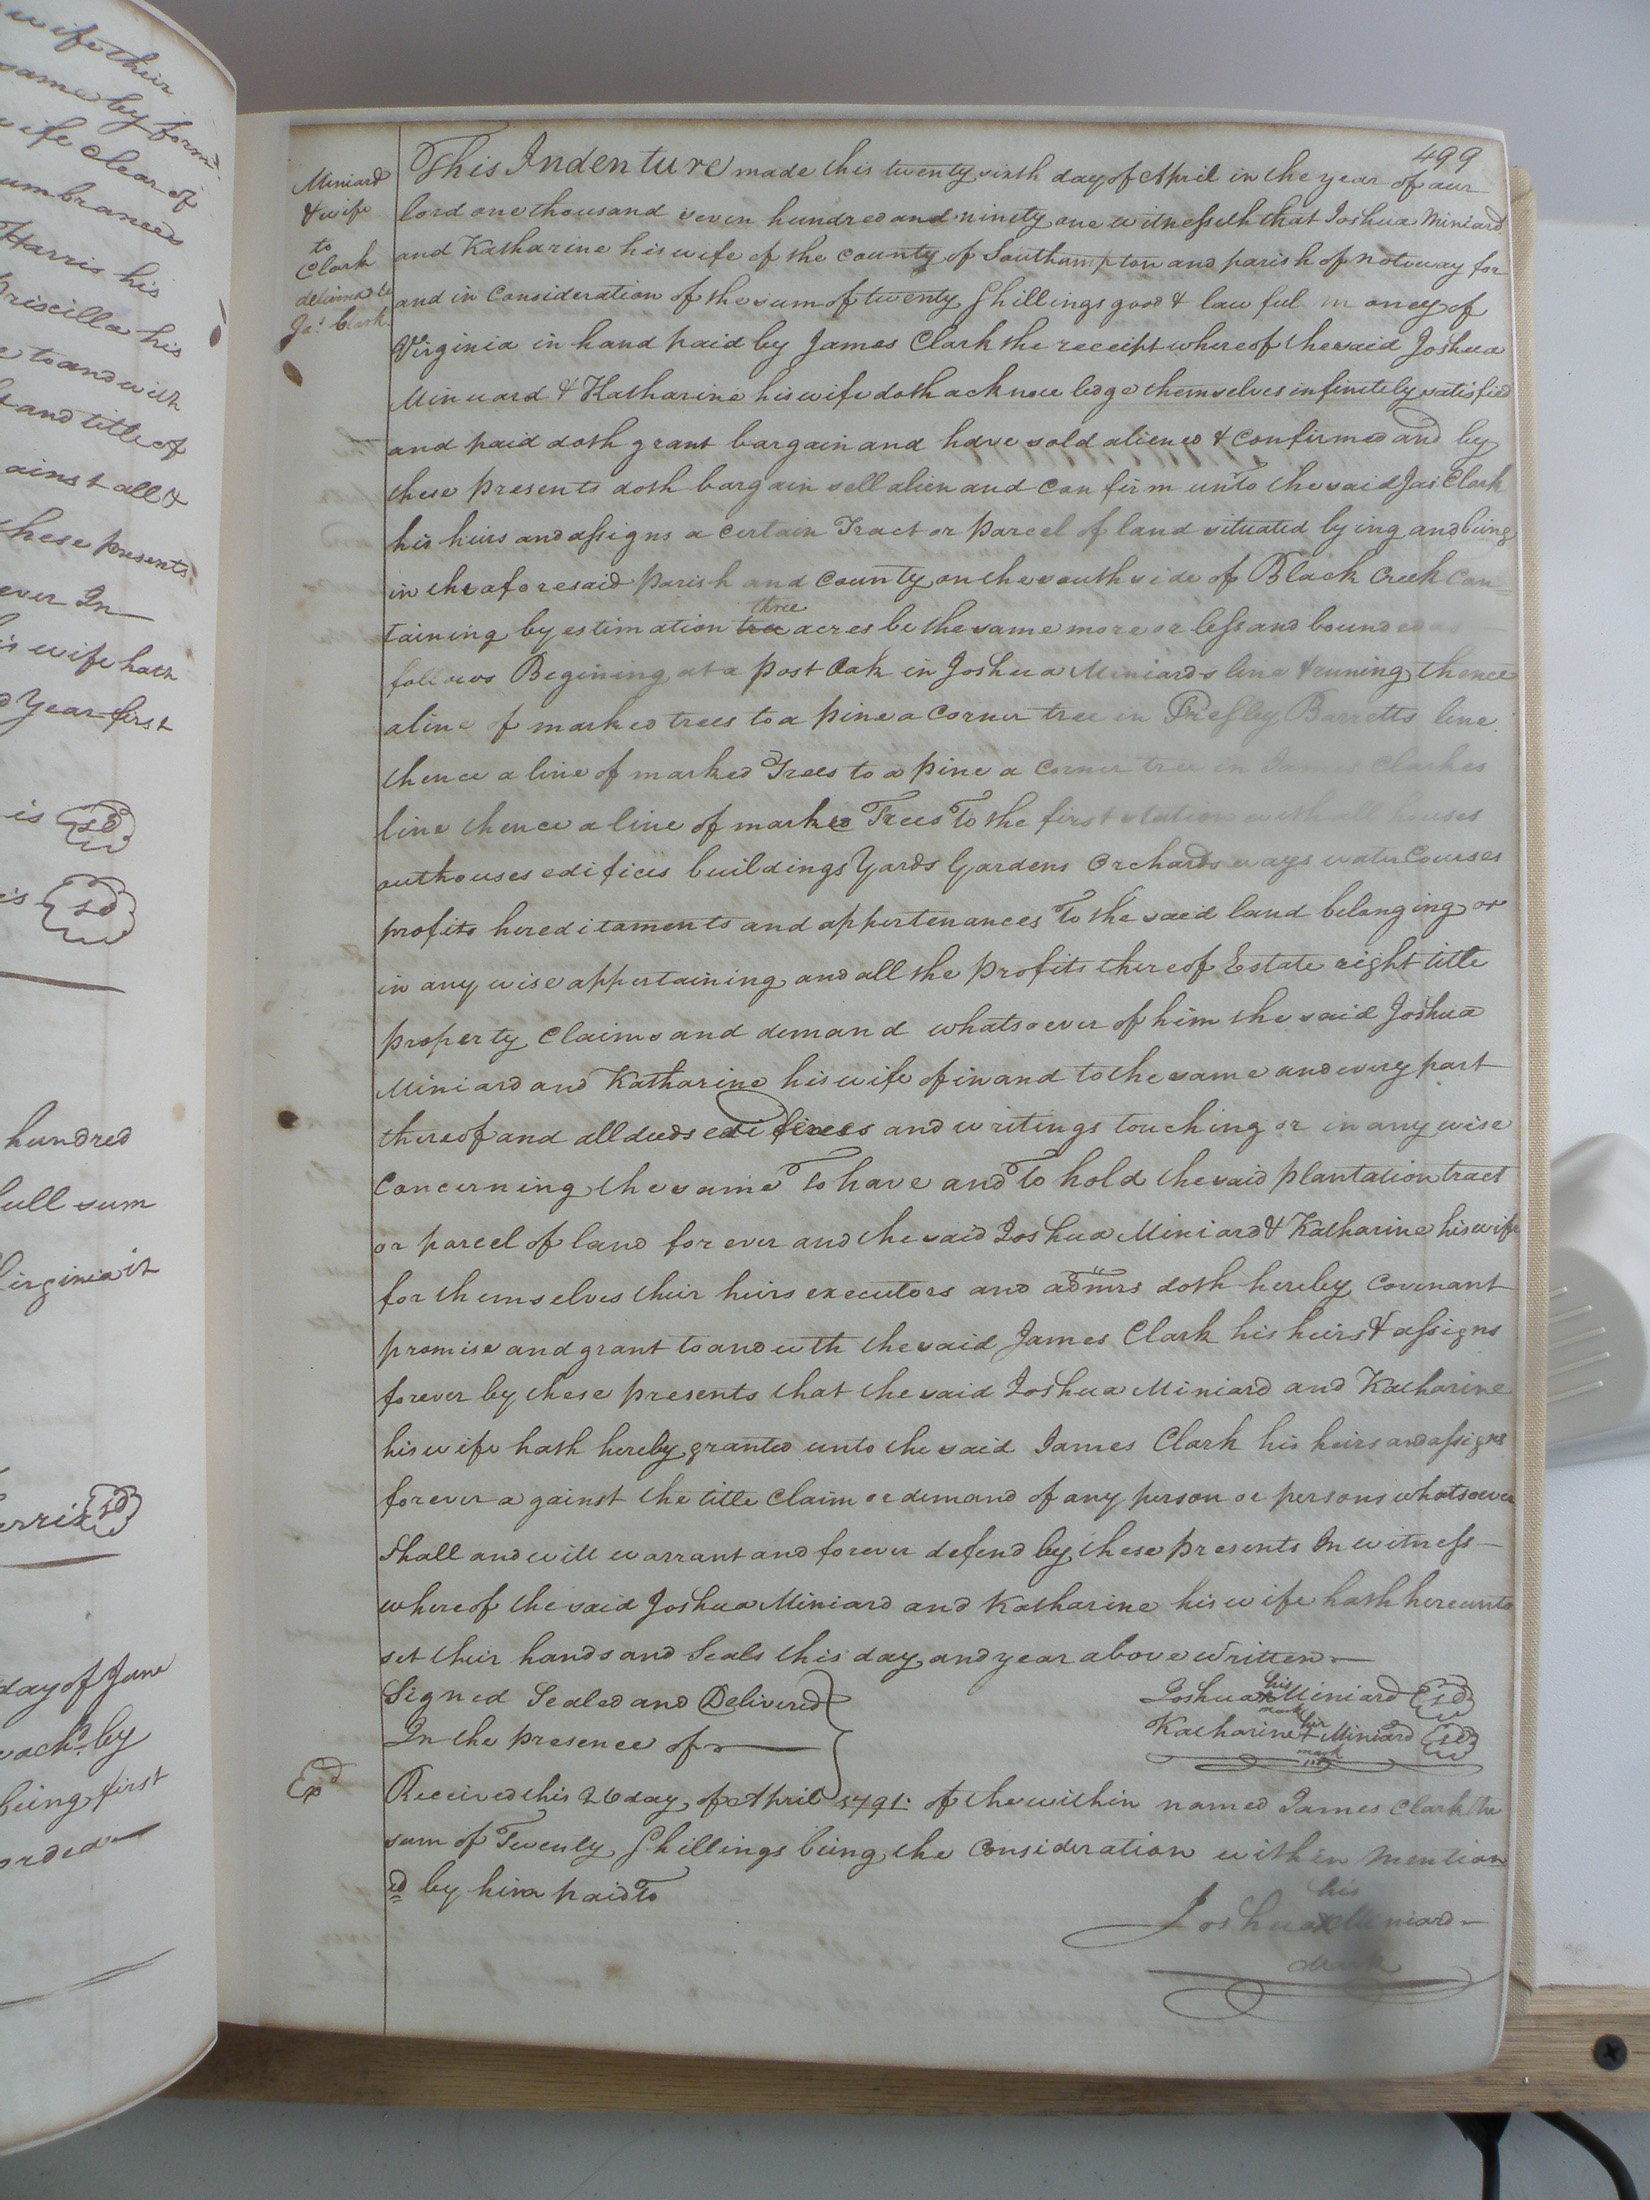 wife their
same by form.
wife Clear of
umbrances
Harris his
Priscilla his
to and with
t and title of
ainst all &
these presents
ever In
is wife hath
d Year first
is sd
is sd
hundred
full sum
Virginia it
erris sd
day of June
each. by
being first
orded
499
Miniard
& wife
to
Clark
delivered to
Jas. Clark
This Indenture made this twenty sixth day of April in the year of our
lord one thousand seven hundred and ninety one witnesseth that Joshua Miniard
and Katharine his wife of the county of Southampton and parish of notoway for
and in Consideration of the sum of twenty Shillings good & lawful money of
Virginia in hand paid by James Clark the receipt whereof the said Joshua
Miniard & Katharine his wife doth acknowledge themselves infinitely satisfied
and paid doth grant bargain and have sold aliened & Confirmed and by
these presents doth bargain sell alien and Confirm unto the said Jas Clark
his heirs and assigns a Certain Tract or parcel of land situated lying and being
in the aforesaid parish and County on the south side of Black Creek Con=
taining by estimation tree three acres be the same more or less and bounded as
follows Begining at a post Oak in Joshua Miniards line & runing thence
a line of marked trees to a pine a Corner tree in Presley Barretts line
thence a line of marked Trees to a pine a Corner tree in James Clarkes
line thence a line of marked Trees To the first station with all houses
outhouses edifices buildings Yards Gardens Orchards ways water Courses
profits hereditaments and appertenances To the said land belonging or
in any wise appertaining and all the profits thereof Estate right title
property Claims and demand whatsoever of him the said Joshua
Miniard and Katharine his wife of in and to the same and every part
thereof and all deeds edifices and writings touching or in any wise
Concerning the same To have and To hold the said plantation tract
or parcel of land for ever and the said Joshua Miniard & Katharine his wife
for themselves their heirs executors and admrs doth hereby Covenant
promise and grant to and wth the said James Clark his heirs & assigns
forever by these presents that the said Joshua Miniard and Katharine
his wife hath hereby granted unto the said James Clark his heirs and assigns
forever against the title Claim or demand of any person or persons whatsoever
Shall and will warrant and forever defend by these presents In witness
whereof the said Joshua Miniard and Katharine his wife hath hereunto
set their hands and Seals this day and year above Written
Signed Sealed and Delivered
In the presence of
Joshua his x mark Miniard sd
Katharine her + mark Miniard sd
Exd
Received this 26 day of April 1791. of the within named James Clark the
sum of Twenty Shillings being the Consideration within mention
ed by him paid To
his
Joshua x Miniard
mark